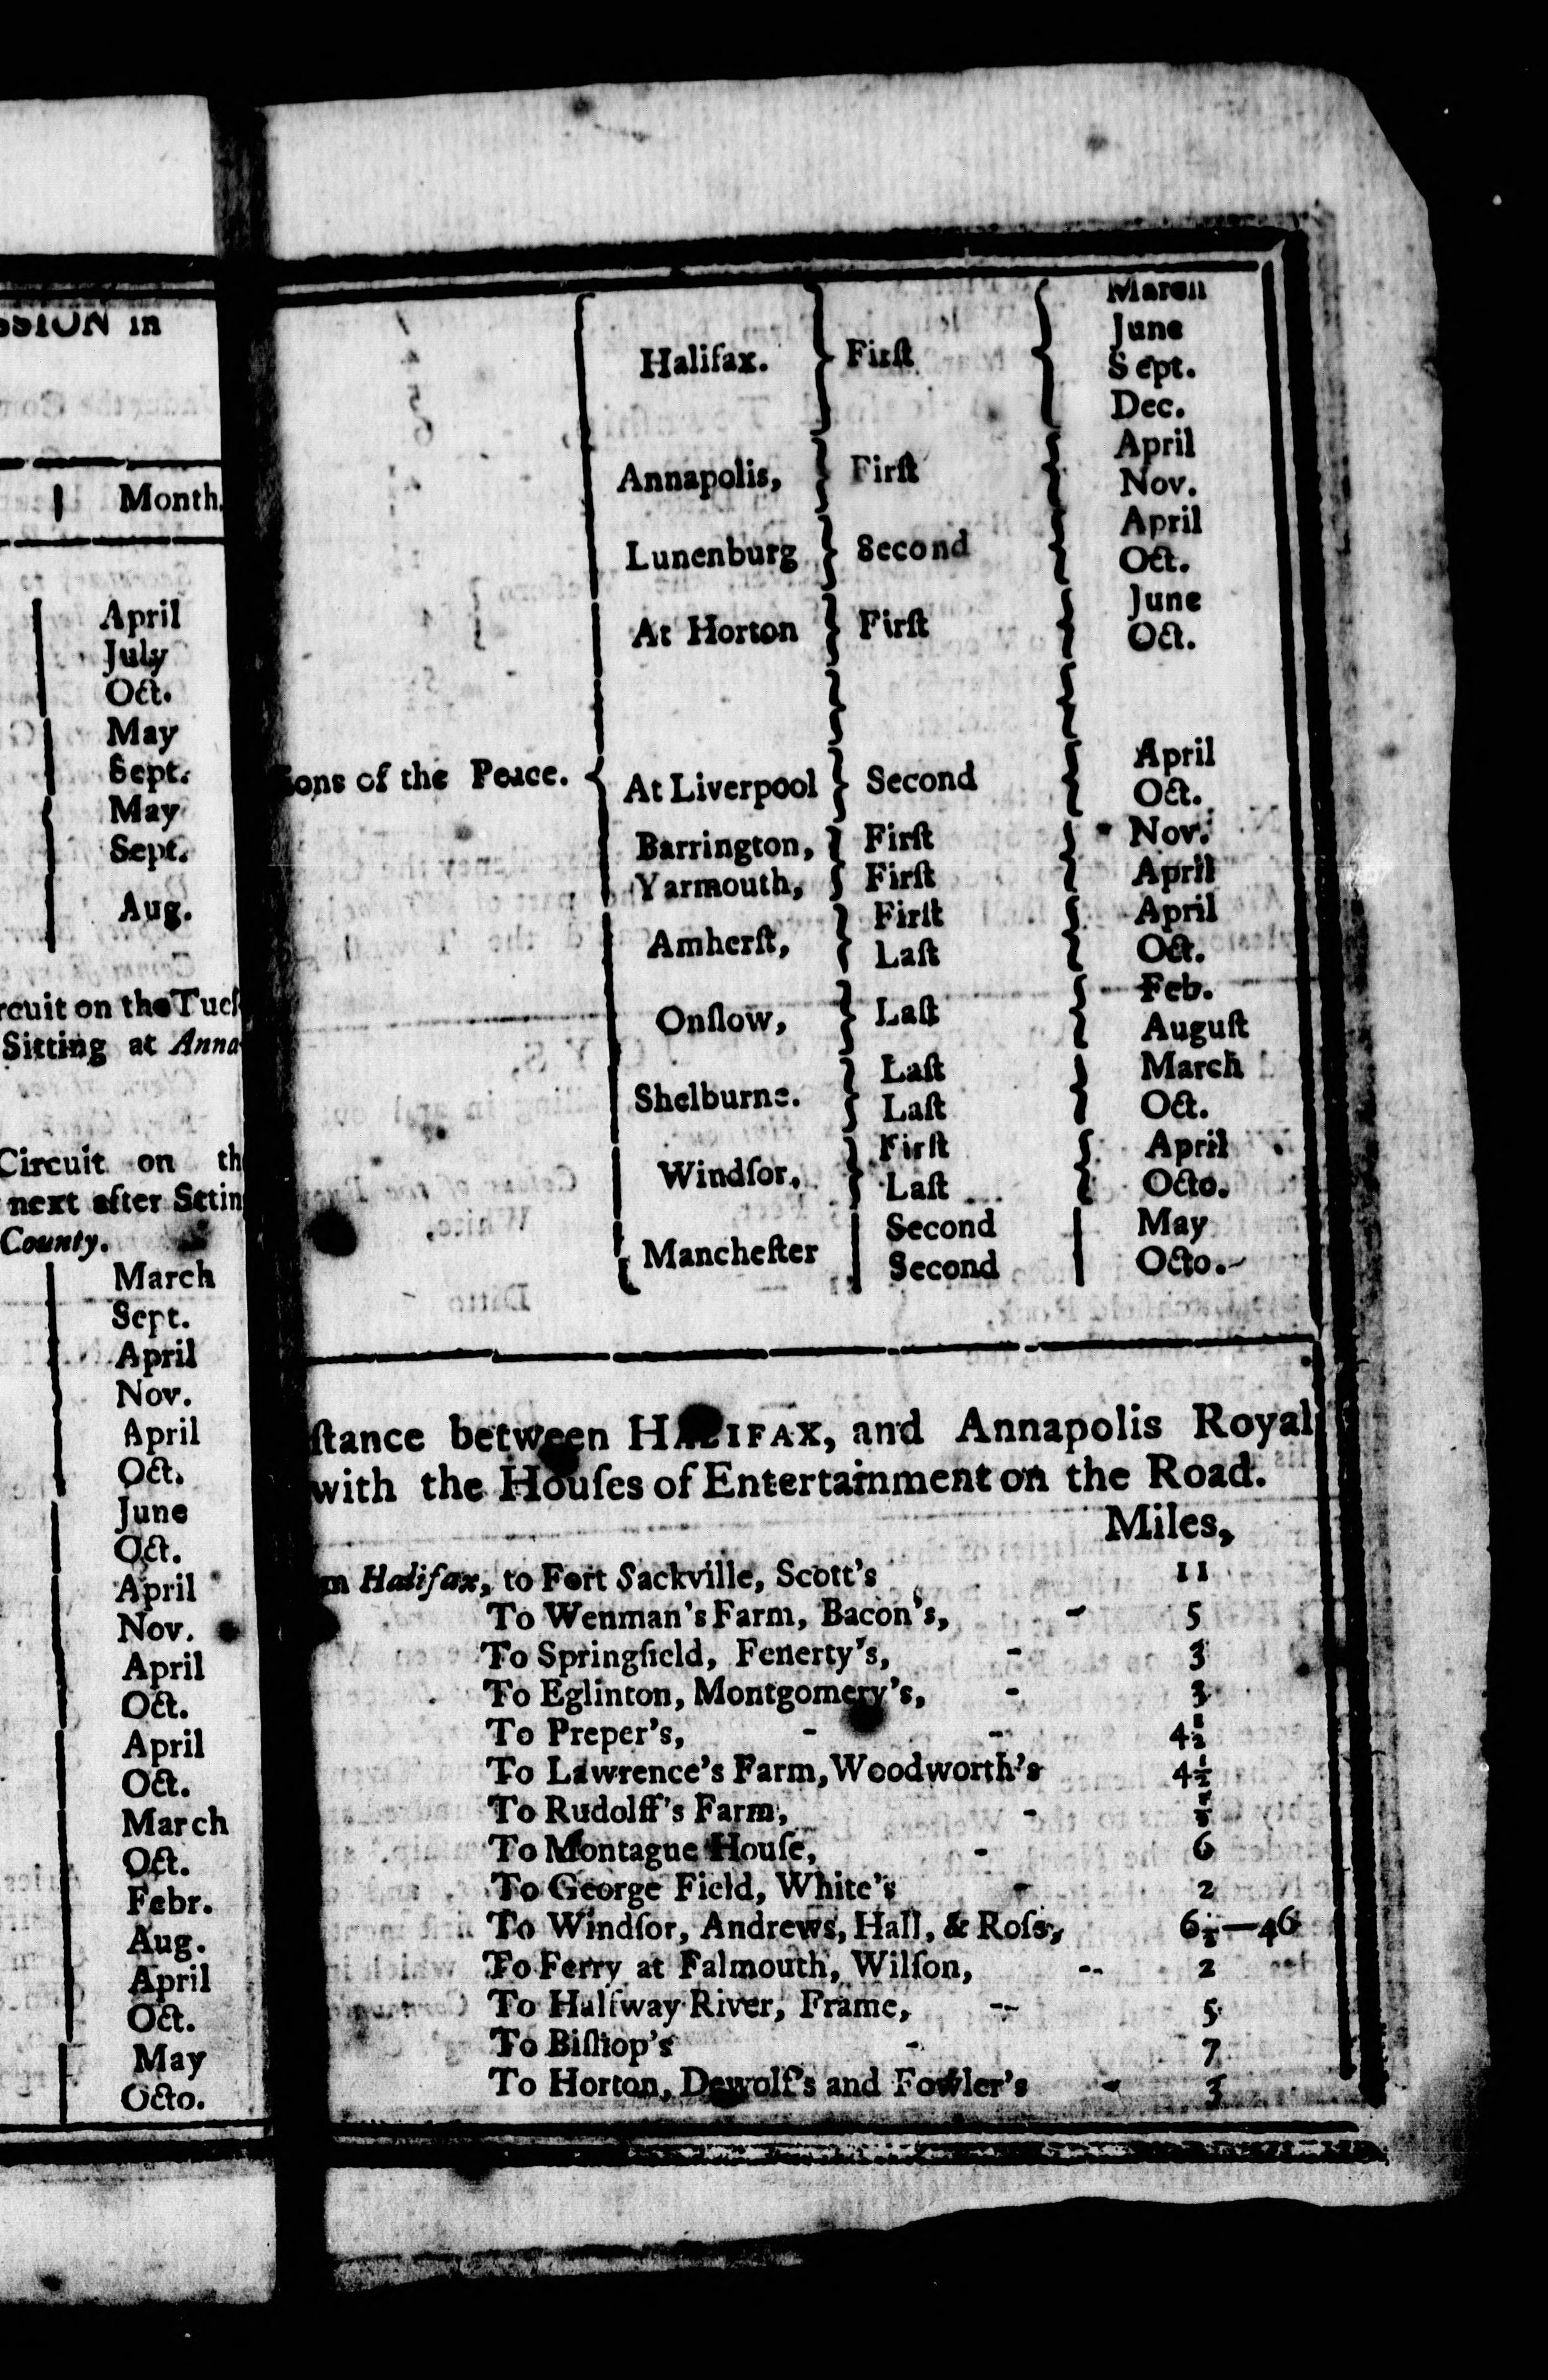 SSION in
Month.
April
July
Oct.
May
Sept.
May
Sept.
Aug.
rcuit on the Tues
Sitting at Anna
Circuit on th
next after Settin
County.
March
Sept.
April
Nov.
April
Oct.
June
Oct.
April
Nov.
April
Oct.
April
Oct.
March
Oct.
Febr.
Aug.
April
Oct.
May
Octo.
March
June
Halifax. } Firſt { Sept.
Dec.
April
Annapolis, } Firſt { Nov.
April
Lunenburg } Second { Oct.
June
At Horton } Firſt { Oct.
ſions of the Peace. {
April
At Liverpool } Second { Oct.
Barrington, } Firſt } Nov.
Yarmouth, } Firſt } April
Firſt April
Amherſt, } Laſt { Oct.
Feb.
Onſlow, } Laſt { Auguſt
Laſt March
Shelburne. } Laſt } Oct.
Firſt April
Windſor, } Laſt { Octo.
Second May
Mancheſter | Second | Octo.
ſtance between HALIFAX, and Annapolis Royal
with the Houſes of Entertainment on the Road.
Miles,
m Halifax, to Fort Sackville, Scott's 11
To Wenman's Farm, Bacon's, - 5
To Springfield, Fenerty's, - 3
To Eglinton, Montgomery's, - 3
To Preper's, - - 4½
To Lawrence's Farm, Woodworth's 4½
To Rudolff's Farm, -
To Montague Houſe, - 6
To George Field, White's - 2
To Windſor, Andrews, Hall, & Roſs, 6½—46
To Ferry at Falmouth, Wilſon, -- 2
To Halfway River, Frame, -- 5
To Biſhop's - 7
To Horton, Dewolf's and Fowler's - 3